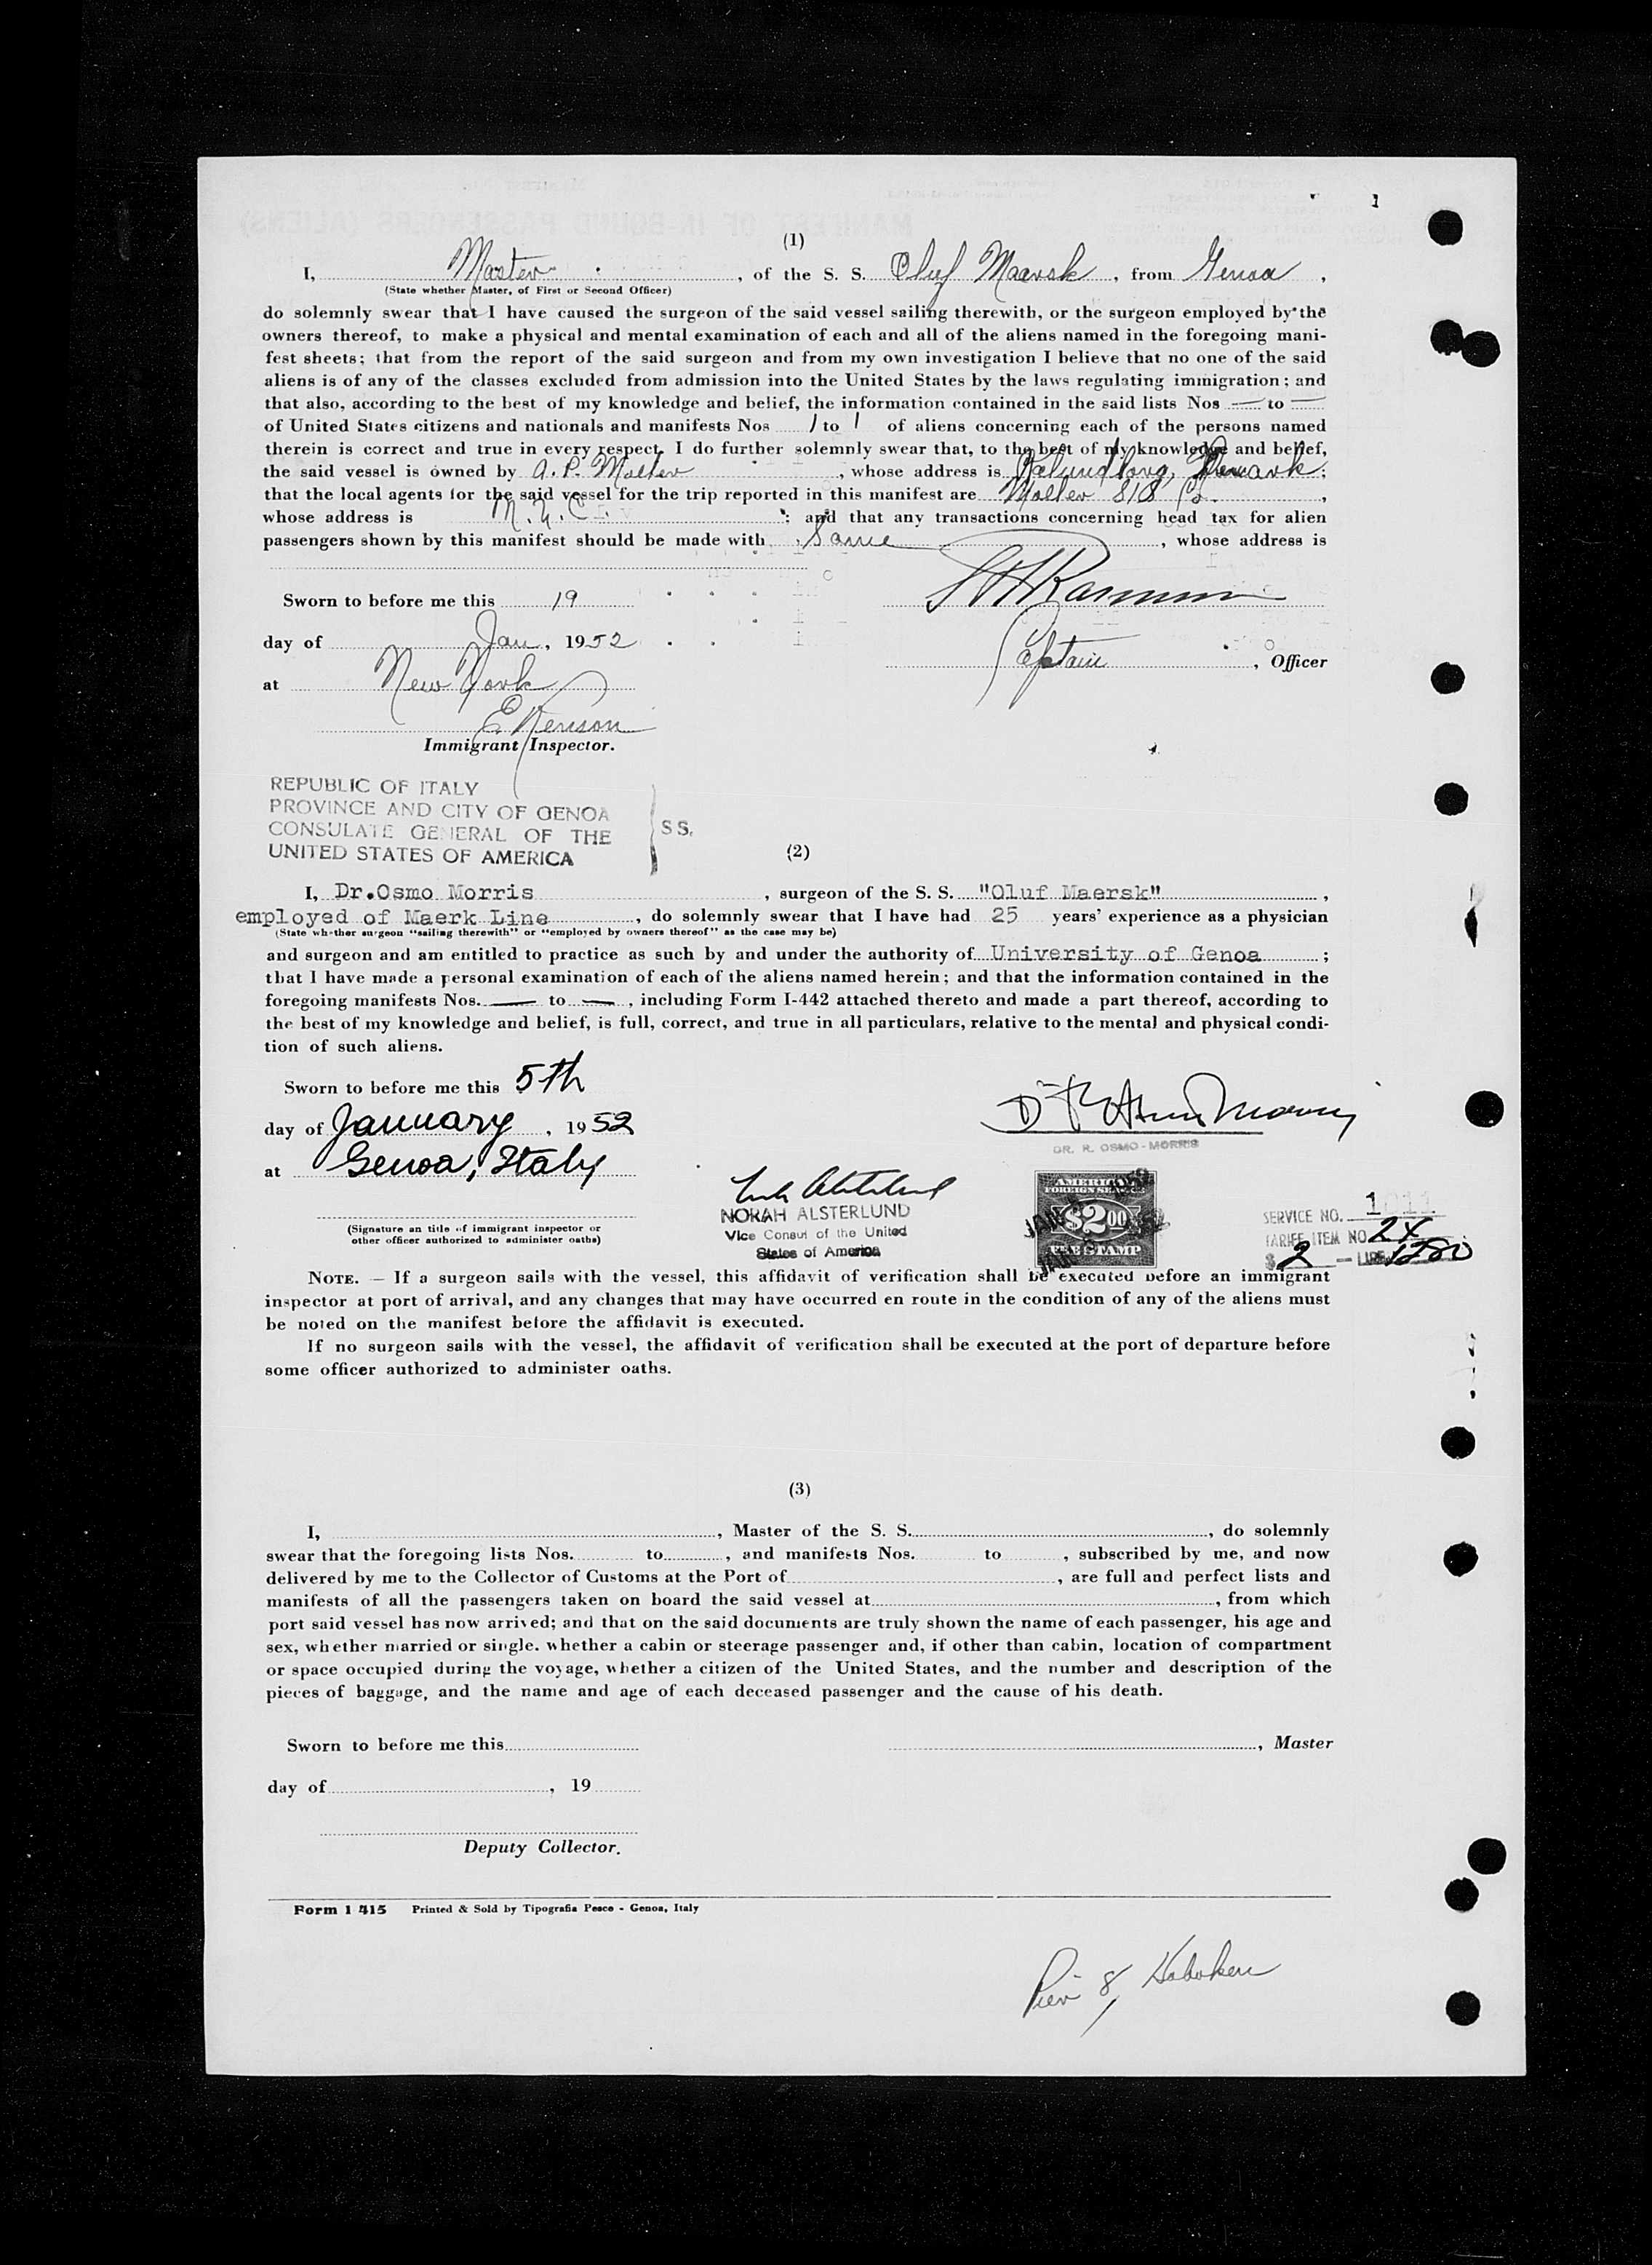 1
(1)
I, Master, of the S. S. Oluf Maersk, from Genoa,
(State whether Master, of First or Second Officer)
do solemnly swear that I have caused the surgeon of the said vessel sailing therewith, or the surgeon employed by the
owners thereof, to make a physical and mental examination of each and all of the aliens named in the foregoing mani-
fest sheets; that from the report of the said surgeon and from my own investigation I believe that no one of the said
aliens is of any of the classes excluded from admission into the United States by the laws regulating immigration; and
that also, according to the best of my knowledge and belief, the information contained in the said lists Nos — to —
of United States citizens and nationals and manifests Nos 1 to 1 of aliens concerning each of the persons named
therein is correct and true in every respect. I do further solemnly swear that, to the best of my knowledge and belief,
the said vessel is owned by A. P. Moller, whose address is Kalundborg, Denmark;
that the local agents for the said vessel for the trip reported in this manifest are Moller S/S Co.,
whose address is N.Y.C.; and that any transactions concerning head tax for alien
passengers shown by this manifest should be made with Same, whose address is
Sworn to before me this 19
day of Jan, 1952
Captain, Officer
at New York
Immigrant Inspector.
REPUBLIC OF ITALY
PROVINCE AND CITY OF GENOA
CONSULATE GENERAL OF THE
UNITED STATES OF AMERICA
SS.
(2)
I, Dr.Osmo Morris, surgeon of the S. S. "Oluf Maersk",
employed of Maerk Line, do solemnly swear that I have had 25 years' experience as a physician
(State whether surgeon "sailing therewith" or "employed by owners thereof" as the case may be)
and surgeon and am entitled to practice as such by and under the authority of University of Genoa;
that I have made a personal examination of each of the aliens named herein; and that the information contained in the
foregoing manifests Nos. — to —, including Form I-442 attached thereto and made a part thereof, according to
the best of my knowledge and belief, is full, correct, and true in all particulars, relative to the mental and physical condi-
tion of such aliens.
Sworn to before me this 5th
day of January, 1952
at Genoa, Italy
DR. R. OSMO-MORRIS
NORAH ALSTERLUND
Vice Consul of the United
States of America
AMERICAN
FOREIGN SERVICE
$2 00
FEE STAMP
SERVICE NO. 1011
TARIFF ITEM NO 24
$ 2 — LIRE 1280
(Signature an title of immigrant inspector or
other officer authorized to administer oaths)
NOTE. — If a surgeon sails with the vessel, this affidavit of verification shall be executed before an immigrant
inspector at port of arrival, and any changes that may have occurred en route in the condition of any of the aliens must
be noted on the manifest before the affidavit is executed.
If no surgeon sails with the vessel, the affidavit of verification shall be executed at the port of departure before
some officer authorized to administer oaths.
(3)
I, , Master of the S. S. , do solemnly
swear that the foregoing lists Nos. to , and manifests Nos. to , subscribed by me, and now
delivered by me to the Collector of Customs at the Port of , are full and perfect lists and
manifests of all the passengers taken on board the said vessel at , from which
port said vessel has now arrived; and that on the said documents are truly shown the name of each passenger, his age and
sex, whether married or single. whether a cabin or steerage passenger and, if other than cabin, location of compartment
or space occupied during the voyage, whether a citizen of the United States, and the number and description of the
pieces of baggage, and the name and age of each deceased passenger and the cause of his death.
Sworn to before me this
, Master
day of , 19
Deputy Collector.
Form I 415 Printed & Sold by Tipografia Pesce - Genoa, Italy
Pier 8, Hoboken